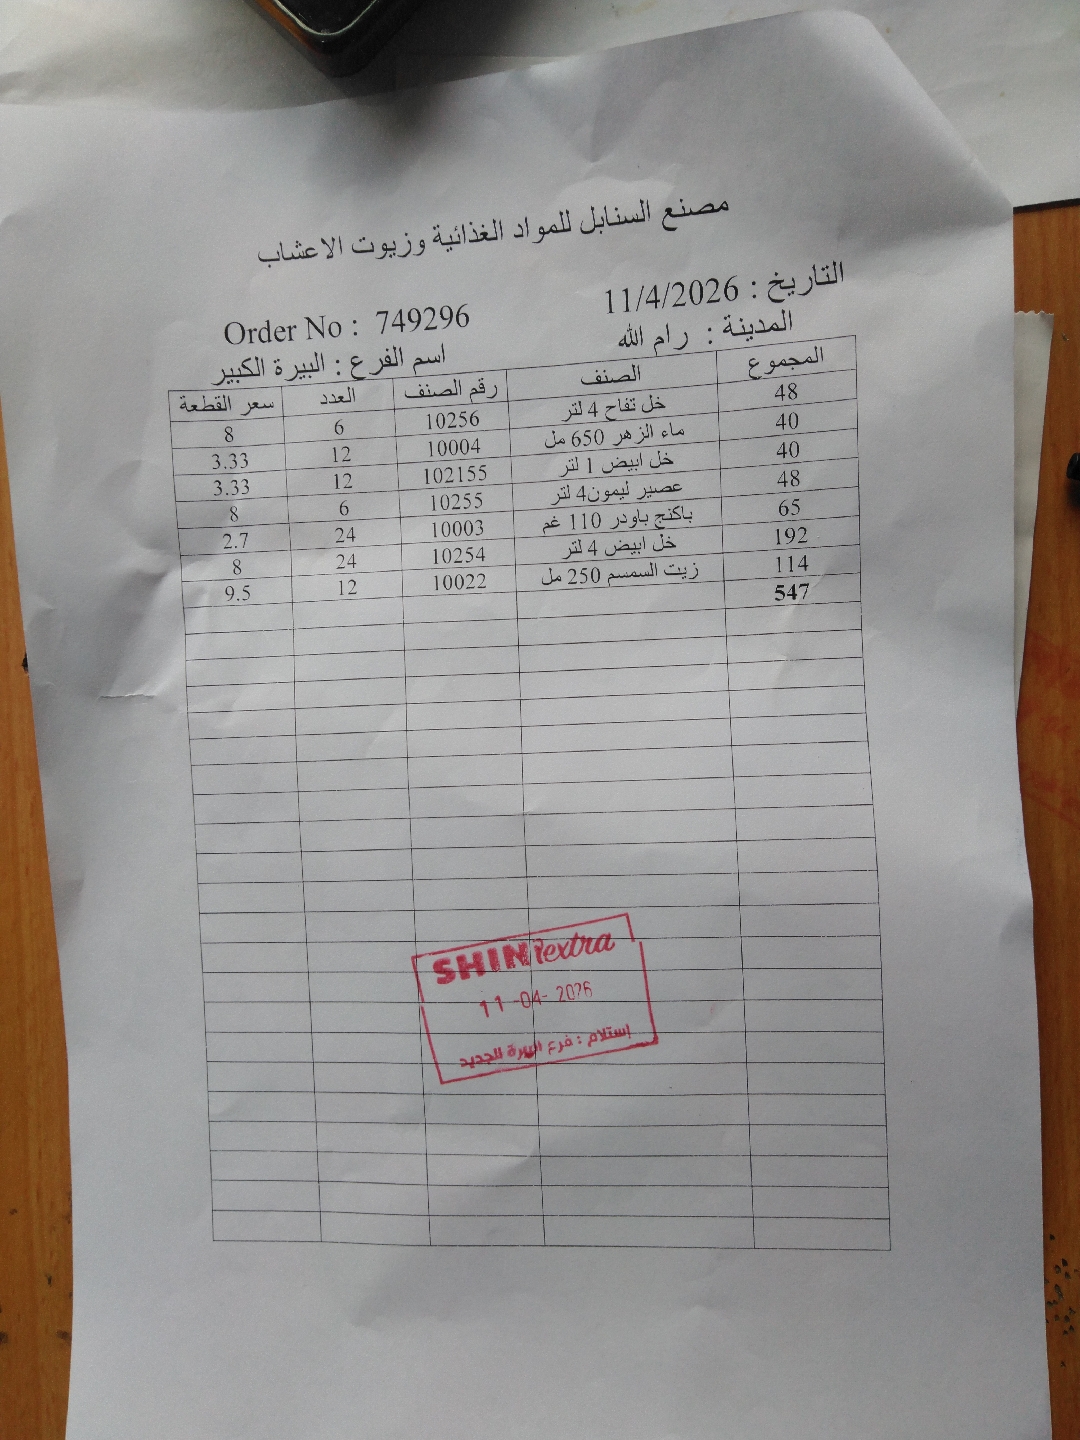 مصنع السنابل للمواد الغذائية وزيوت الاعشاب
التاريخ : 11/4/2026
Order No : 749296
المدينة : رام الله
اسم الفرع : البيرة الكبير
المجموع الصنف رقم الصنف العدد سعر القطعة
48 خل تفاح 4 لتر 10256 6 8
40 ماء الزهر 650 مل 10004 12 3.33
40 خل ابيض 1 لتر 102155 12 3.33
48 عصير ليمون4 لتر 10255 6 8
65 باكنج باودر 110 غم 10003 24 2.7
192 خل ابيض 4 لتر 10254 24 8
114 زيت السمسم 250 مل 10022 12 9.5
547
SHINI extra
11-04-2026
إستلام : فرع البيرة الجديد